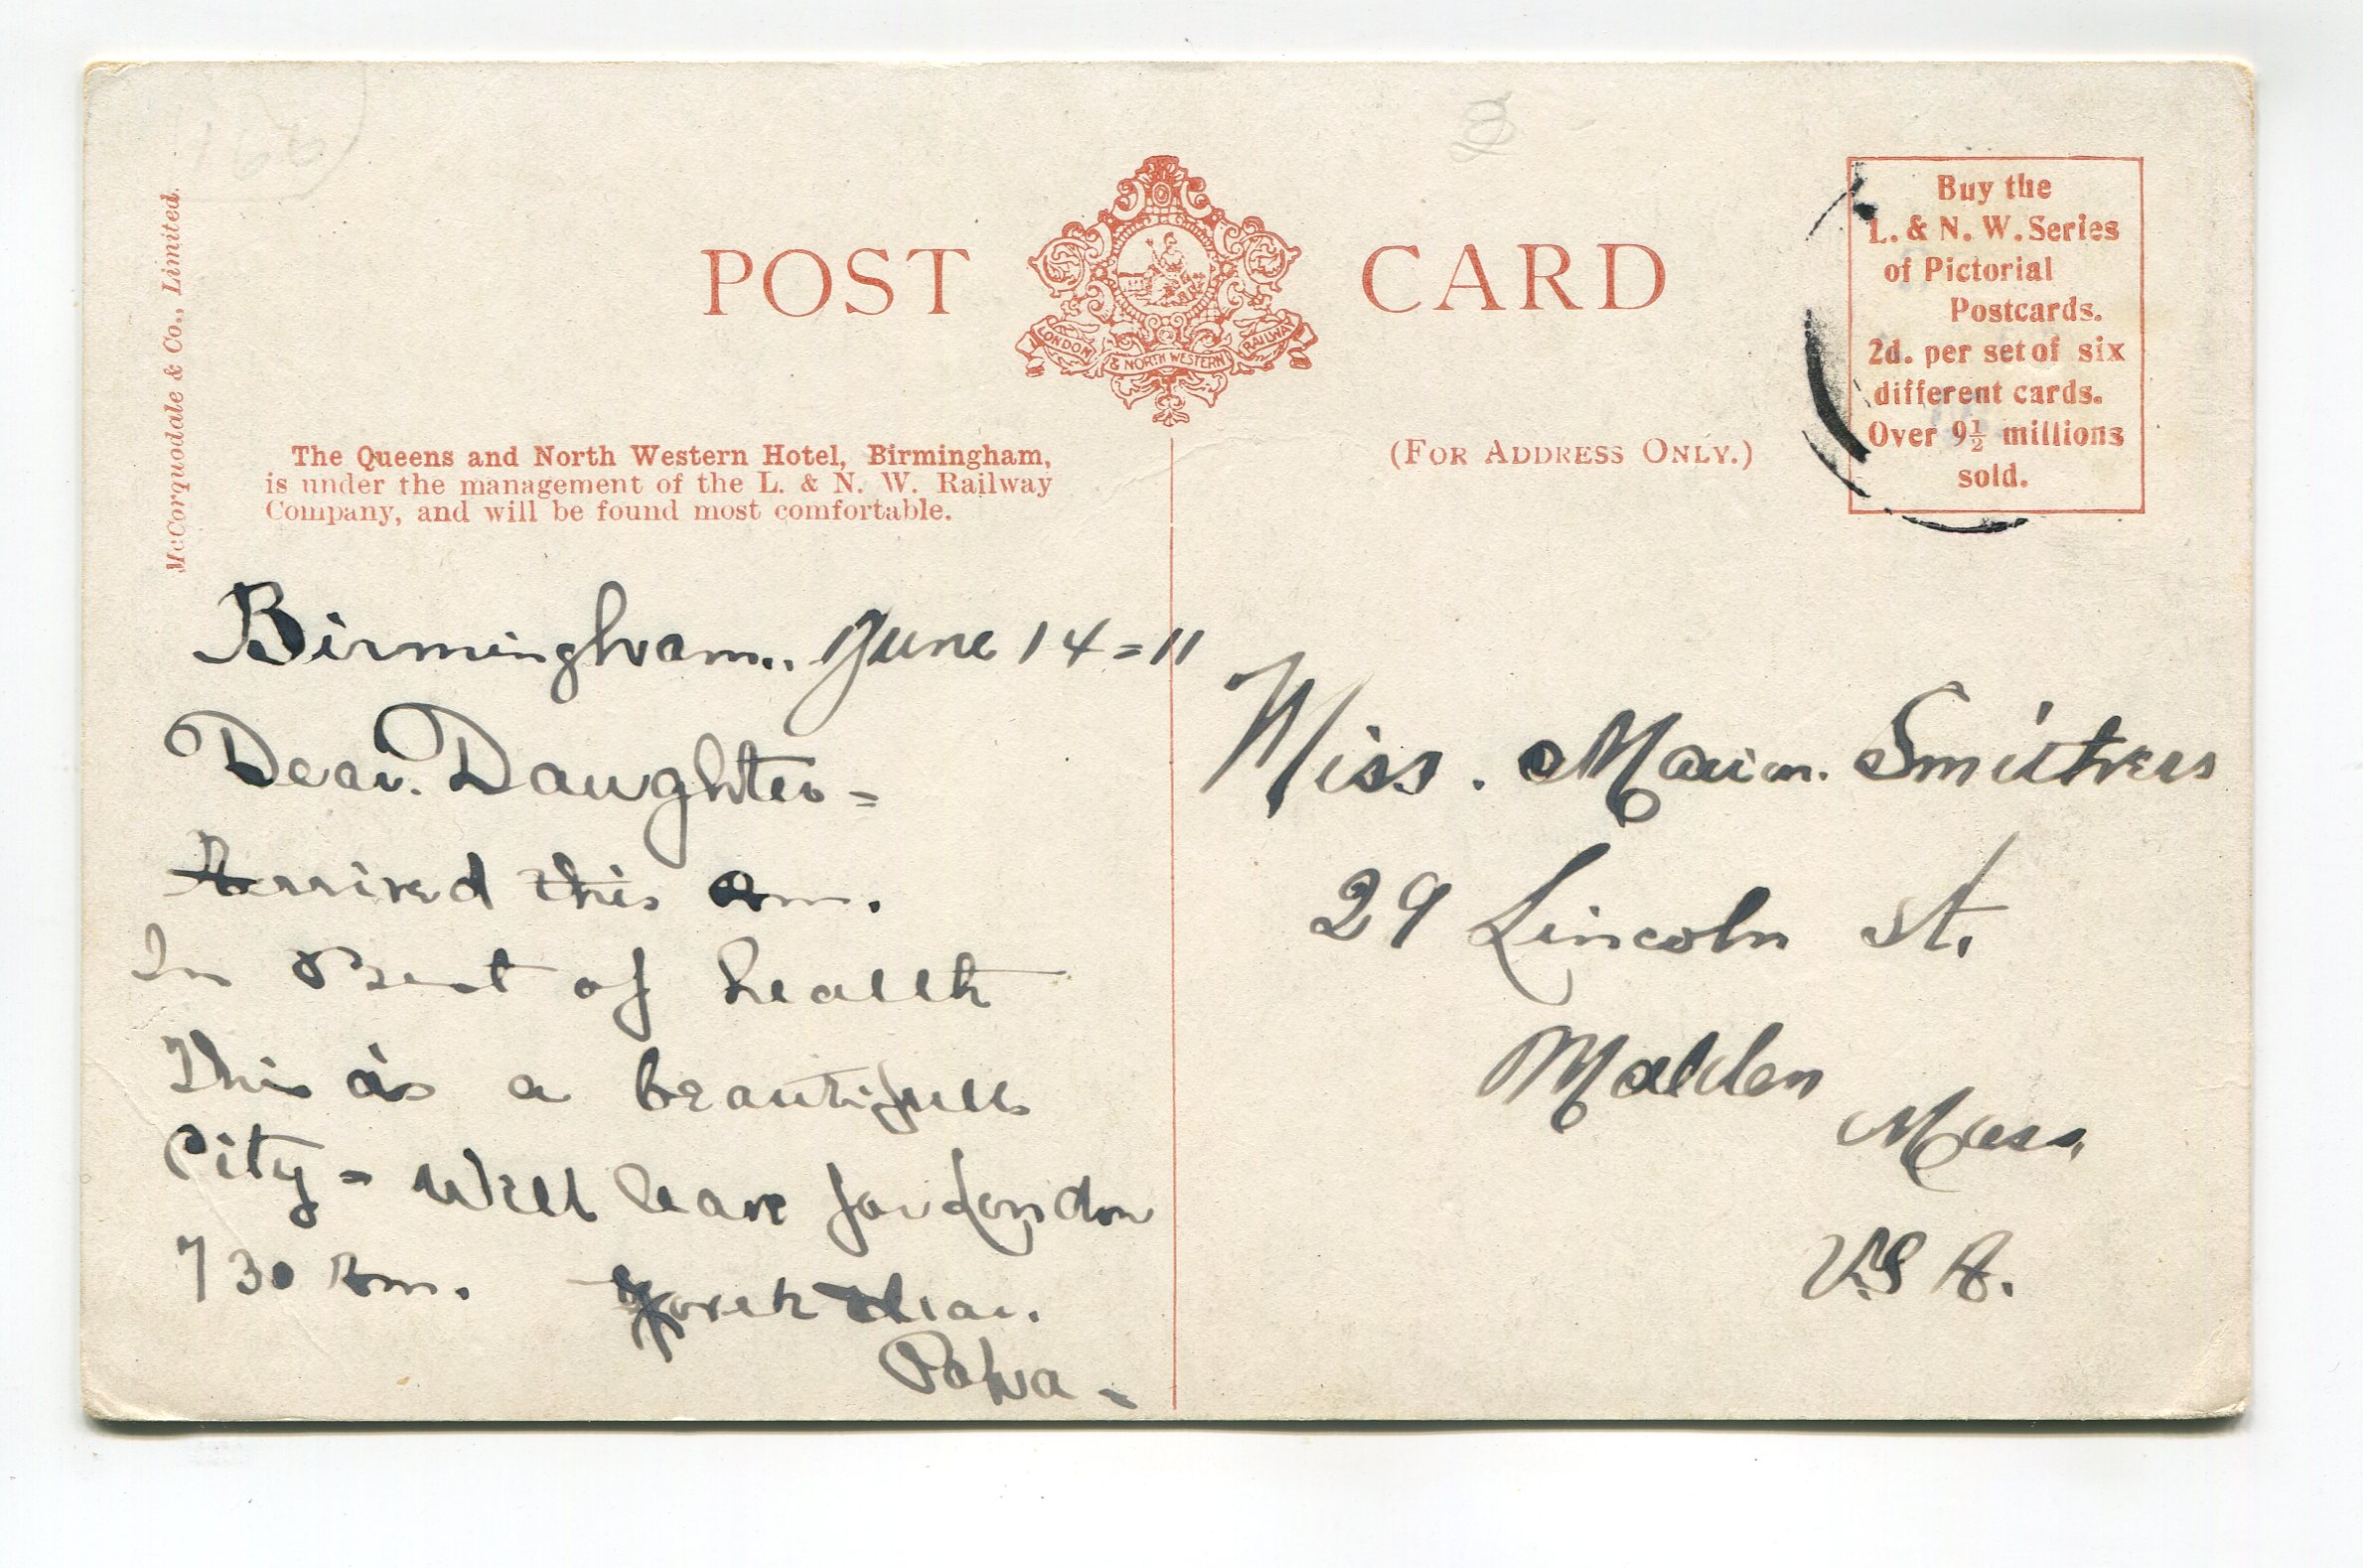 166
McCorquodale & Co., Limited.
POST CARD
LONDON & NORTH WESTERN RAILWAY
Buy the
L. & N. W. Series
of Pictorial
Postcards.
2d. per set of six
different cards.
Over 9½ millions
sold.
The Queens and North Western Hotel, Birmingham,
is under the management of the L. & N. W. Railway
Company, and will be found most comfortable.
(FOR ADDRESS ONLY.)
Birmingham. June 14=11
Dear. Daughter=
Arrived this am.
In Best of health
This is a beautifull
City = Will leave for London
7 30 am.
Papa -
Miss. Smithers
29 Lincoln St.
Malden
Mass.
U.S A.